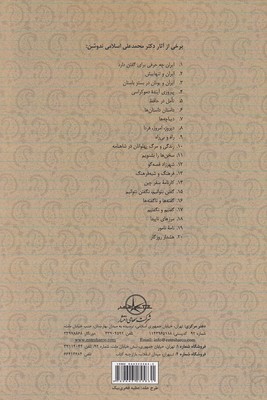 برخی از آثار دکتر محمدعلی اسلامی ندوشن:
۱. ایران چه حرفی برای گفتن دارد
۲. ایران و تنهائیش
۳. ایران و یونان در بستر باستان
۴. پیروزی آیندهٔ دموکراسی
۵. تأمل در حافظ
۶. داستان داستان‌ها
۷. دیباچه‌ها
۸. دیروز، امروز، فردا
۹. راه و بی‌راه
۱۰. زندگی و مرگ پهلوانان در شاهنامه
۱۱. سخن‌ها را بشنویم
۱۲. شهرزاد قصه‌گو
۱۳. فرهنگ و شبه‌فرهنگ
۱۴. کارنامهٔ سفر چین
۱۵. گفتن نتوانیم، نگفتن نتوانیم
۱۶. گفته‌ها و ناگفته‌ها
۱۷. گفتیم و نگفتیم
۱۸. مرزهای ناپیدا
۱۹. نامهٔ نامور
۲۰. هشدار روزگار
شرکت سهامی انتشار